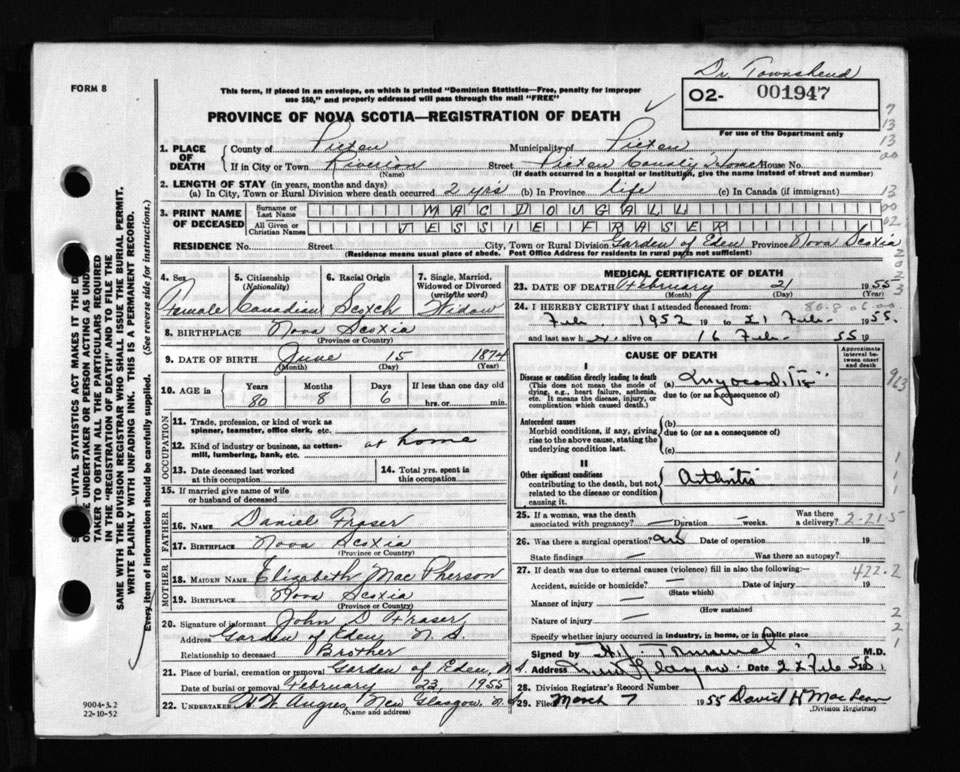 Dr. Townshend
FORM 8
This form, if placed in an envelope, on which is printed "Dominion Statistics—Free, penalty for improper
use $50," and properly addressed will pass through the mail "FREE"
O2- 001947
PROVINCE OF NOVA SCOTIA—REGISTRATION OF DEATH
For use of the Department only
1. PLACE OF DEATH
County of Pictou Municipality of Pictou
If in City or Town Riverton Street Pictou County Home House No.
(Name) (If death occurred in a hospital or institution, give the name instead of street and number)
2. LENGTH OF STAY (in years, months and days)
(a) In City, Town or Rural Division where death occurred 2 yrs (b) In Province life (c) In Canada (if immigrant)
3. PRINT NAME OF DECEASED
Surname or Last Name MAC DOUGALL
All Given or Christian Names JESSIE FRASER
RESIDENCE No. Street City, Town or Rural Division Garden of Eden Province Nova Scotia
(Residence means usual place of abode. Post Office Address for residents in rural parts not sufficient)
4. Sex Female
5. Citizenship (Nationality) Canadian
6. Racial Origin Scotch
7. Single, Married, Widowed or Divorced (write the word) Widow
8. BIRTHPLACE Nova Scotia
(Province or Country)
9. DATE OF BIRTH June 15 1874
(Month) (Day) (Year)
10. AGE in Years 80 Months 8 Days 6 If less than one day old hrs. or min.
OCCUPATION
11. Trade, profession, or kind of work as spinner, teamster, office clerk, etc.
12. Kind of industry or business, as cotton-mill, lumbering, bank, etc. at home
13. Date deceased last worked at this occupation
14. Total yrs. spent in this occupation
15. If married give name of wife or husband of deceased
FATHER
16. NAME Daniel Fraser
17. BIRTHPLACE Nova Scotia
(Province or Country)
MOTHER
18. MAIDEN NAME Elizabeth Mac Pherson
19. BIRTHPLACE Nova Scotia
(Province or Country)
20. Signature of informant John D Fraser
Address Garden of Eden, N. S.
Relationship to deceased Brother
21. Place of burial, cremation or removal Garden of Eden, N.S.
Date of burial or removal February 23, 1955
22. UNDERTAKER New Glasgow N.S.
(Name and address)
MEDICAL CERTIFICATE OF DEATH
23. DATE OF DEATH February 21 1955
(Month) (Day) (Year)
24. I HEREBY CERTIFY that I attended deceased from:
Feb. 1952 19 to 21 Feb. 1955.
and last saw h alive on 16 Feb. 55 19
CAUSE OF DEATH
Approximate interval between onset and death
I
Disease or condition directly leading to death
(This does not mean the mode of dying, e.g., heart failure, asthenia, etc. It means the disease, injury, or complication which caused death.)
(a) Myocarditis
due to (or as a consequence of)
Antecedent causes
Morbid conditions, if any, giving rise to the above cause, stating the underlying condition last.
(b)
due to (or as a consequence of)
(c)
II
Other significant conditions
contributing to the death, but not related to the disease or condition causing it.
Arthritis
25. If a woman, was the death associated with pregnancy? — Duration — weeks. Was there a delivery? 2-21-5
26. Was there a surgical operation? no Date of operation 19
State findings — Was there an autopsy?
27. If death was due to external causes (violence) fill in also the following:— 422.2
Accident, suicide or homicide? — Date of injury 19
(State which)
Manner of injury —
(How sustained)
Nature of injury —
Specify whether injury occurred in industry, in home, or in public place
Signed by M.D.
Address New Glasgow. Date Feb 55
28. Division Registrar's Record Number
29. Filed March 7 1955 David H Mac Lean
(Division Registrar)
9004-3.2
22-10-52
VITAL STATISTICS ACT MAKES IT THE
UNDERTAKER OR PERSON ACTING AS UNDER-
TAKER TO OBTAIN ALL THE PARTICULARS REQUIRED
IN THE "REGISTRATION OF DEATH" AND TO FILE THE
SAME WITH THE DIVISION REGISTRAR WHO SHALL ISSUE THE BURIAL PERMIT.
WRITE PLAINLY WITH UNFADING INK. THIS IS A PERMANENT RECORD.
Every item of information should be carefully supplied. (See reverse side for instructions.)